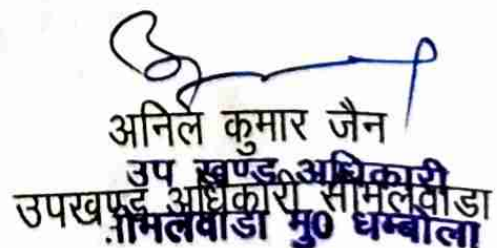 अनिल कुमार जैन
उप खण्ड अधिकारी
उपखण्ड अधिकारी सीमलवाडा
सीमलवाडा मु0 धम्बोला